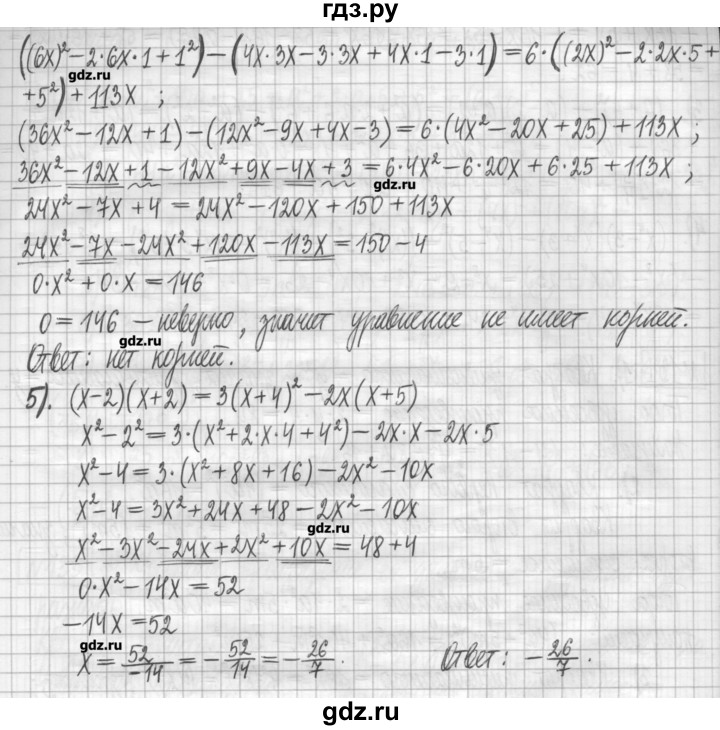 гдз.ру
((6x)² − 2·6x·1 + 1²) − (4x·3x − 3·3x + 4x·1 − 3·1) = 6·((2x)² − 2·2x·5 +
gdz.ru
+5²) + 113x ;
(36x² − 12x + 1) − (12x² − 9x + 4x − 3) = 6·(4x² − 20x + 25) + 113x ;
36x² − 12x + 1 − 12x² + 9x − 4x + 3 = 6·4x² − 6·20x + 6·25 + 113x ;
gdz.ru
24x² − 7x + 4 = 24x² − 120x + 150 + 113x
24x² − 7x − 24x² + 120x − 113x = 150 − 4
0·x² + 0·x = 146
0 = 146 – неверно, значит уравнение не имеет корней.
gdz.ru
Ответ: нет корней.
5). (x−2)(x+2) = 3(x+4)² − 2x(x+5)
x² − 2² = 3·(x² + 2·x·4 + 4²) − 2x·x − 2x·5
x² − 4 = 3·(x² + 8x + 16) − 2x² − 10x
x² − 4 = 3x² + 24x + 48 − 2x² − 10x
gdz.ru
x² − 3x² − 24x + 2x² + 10x = 48 + 4
0·x² − 14x = 52
−14x = 52
gdz.ru
x = 52/−14 = −52/14 = −26/7. Ответ: −26/7.
gdz.ru